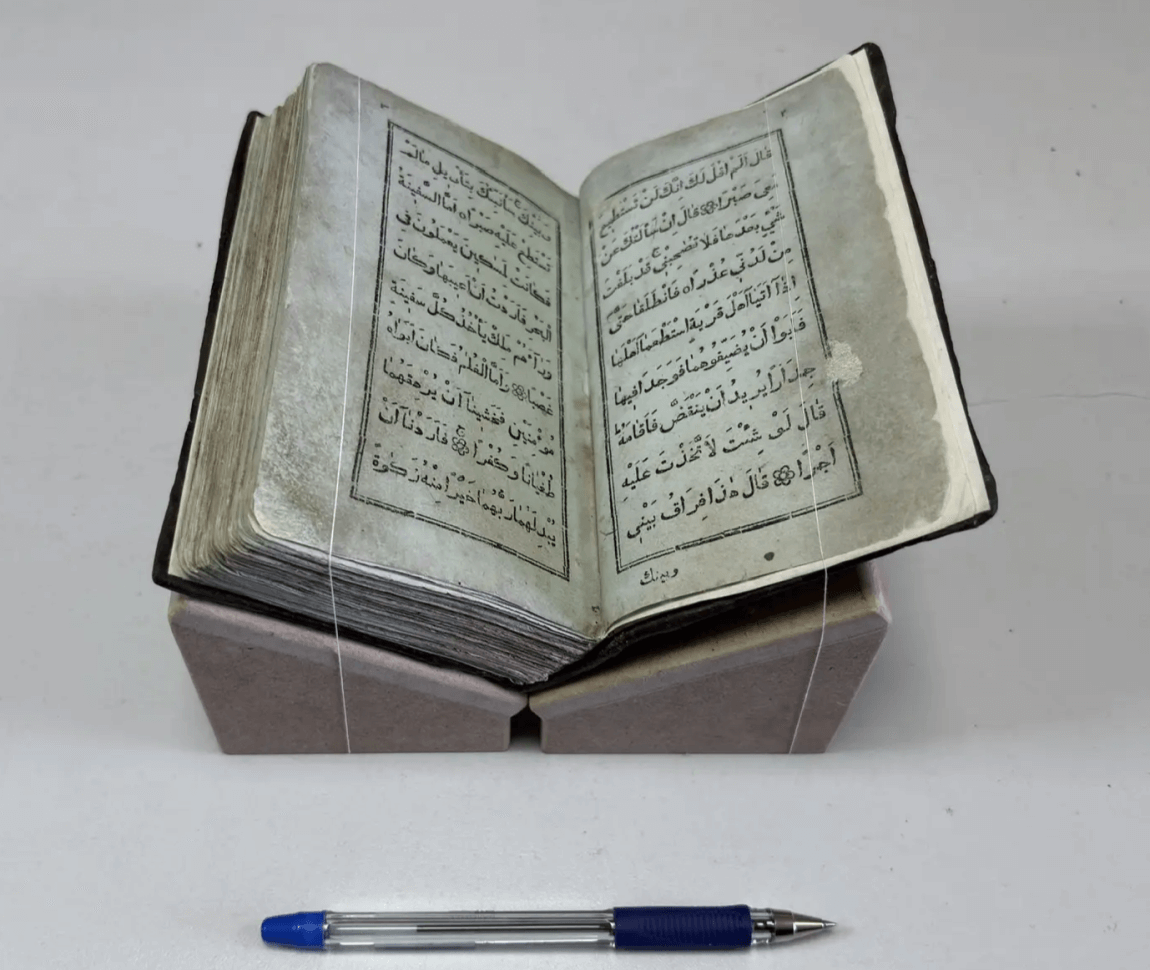 قَالَ اَلَمْ اَقُلْ لَكَ اِنَّكَ لَنْ تَسْتَطِيعَ
مَعِىَ صَبْرًا ۞ قَالَ اِنْ سَاَلْتُكَ عَنْ
شَيْءٍ بَعْدَهَا فَلَا تُصٰحِبْنِي ج قَدْ بَلَغْتَ
مِنْ لَدُنِّي عُذْرًا ه فَانْطَلَقَا حَتّٰى
اِذَا اَتَيَا اَهْلَ قَرْيَةٍ اسْتَطْعَمَا اَهْلَهَا
فَاَبَوْا اَنْ يُضَيِّفُوهُمَا فَوَجَدَا فِيهَا
جِدَارًا يُرِيدُ اَنْ يَنْقَضَّ فَاَقَامَهُ ط
قَالَ لَوْ شِئْتَ لَاتَّخَذْتَ عَلَيْهِ
اَجْرًا ۞ قَالَ هٰذَا فِرَاقُ بَيْنِي
وبينك
وَبَيْنِكَ ج سَاُنَبِّئُكَ بِتَأْوِيلِ مَا لَمْ
تَسْتَطِعْ عَلَيْهِ صَبْرًا ه اَمَّا السَّفِينَةُ
فَكَانَتْ لِمَسٰكِينَ يَعْمَلُونَ فِي
الْبَحْرِ فَاَرَدْتُ اَنْ اَعِيبَهَا وَكَانَ
وَرَآءَهُمْ مَلِكٌ يَأْخُذُ كُلَّ سَفِينَةٍ
غَصْبًا ۞ وَاَمَّا الْغُلٰمُ فَكَانَ اَبَوٰاهُ
مُؤْمِنَيْنِ فَخَشِينَآ اَنْ يُرْهِقَهُمَا
طُغْيَانًا وَكُفْرًا ج ۞ فَاَرَدْنَآ اَنْ
يُبْدِلَهُمَا رَبُّهُمَا خَيْرًا مِنْهُ زَكٰوةً